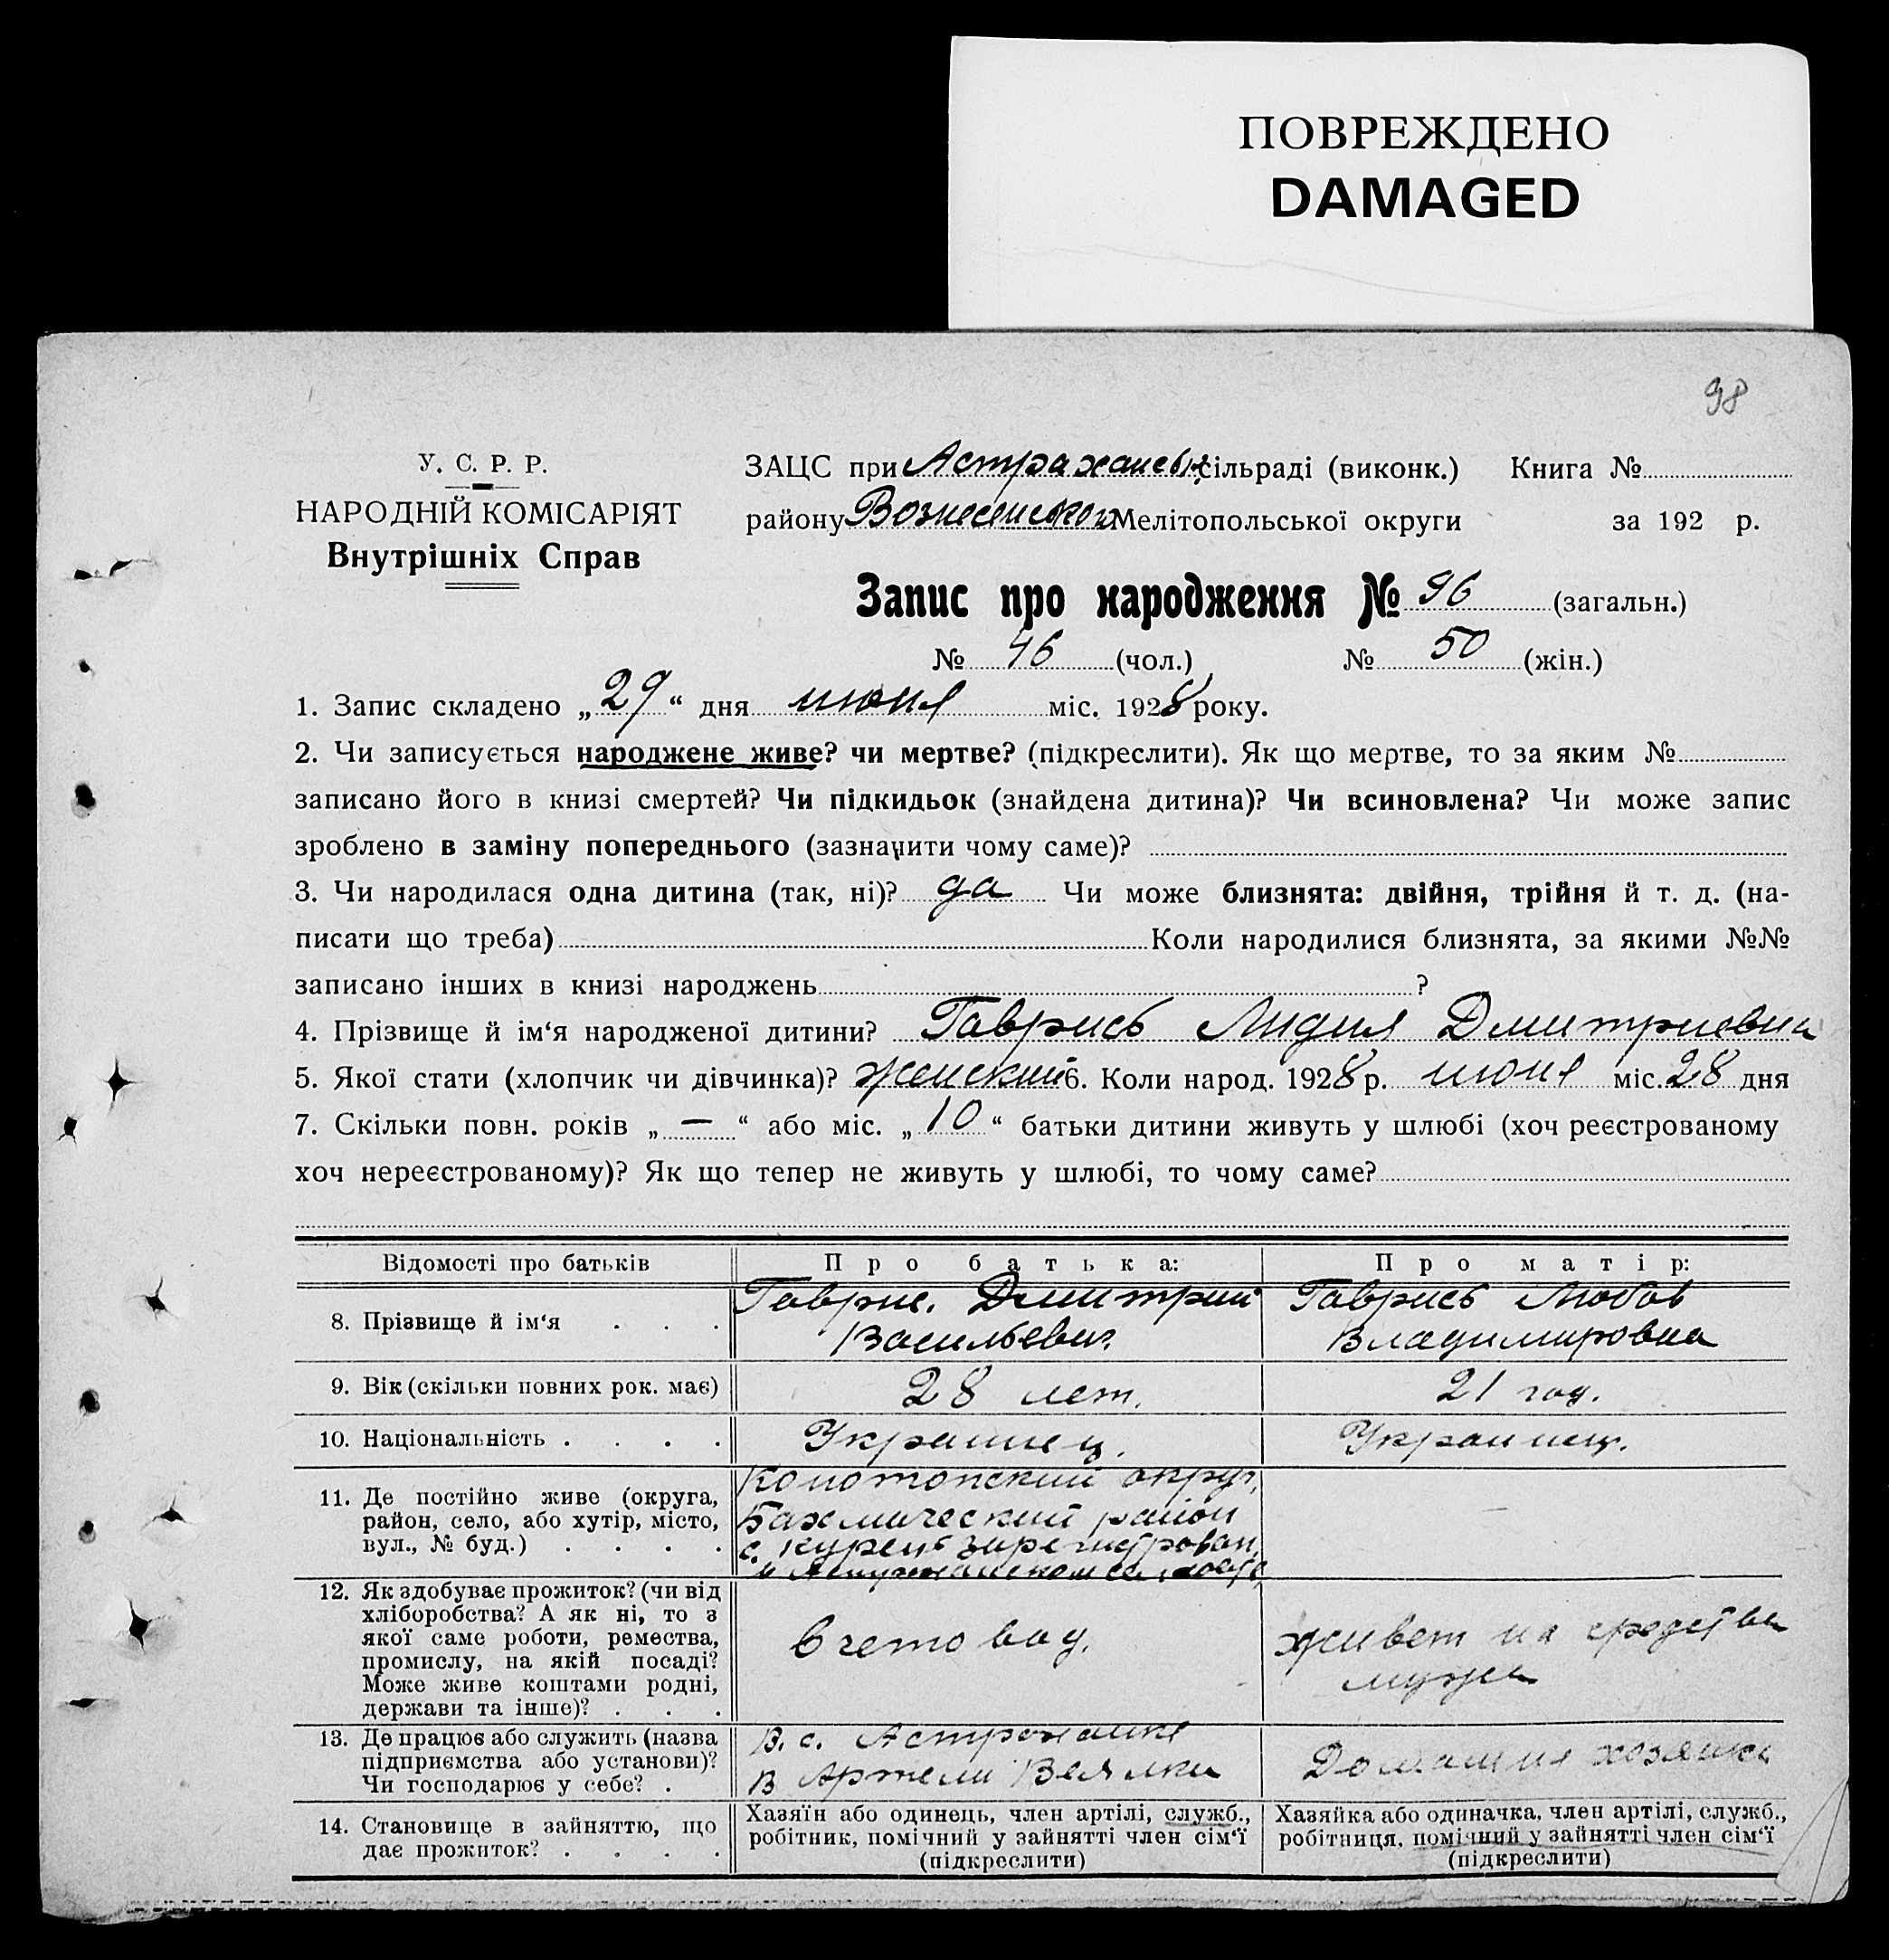 ПОВРЕЖДЕНО
DAMAGED
98
У. С. Р. Р.
НАРОДНІЙ КОМІСАРІЯТ
Внутрішніх Справ
ЗАЦС при Астраханськ. сільраді (виконк.) Книга №
району Вознесенского Мелітопольської округи за 192 р.
Запис про народження № 96 (загальн.)
№ 46 (чол.) № 50 (жін.)
1. Запис складено „29“ дня июня міс. 1928 року.
2. Чи записується народжене живе? чи мертве? (підкреслити). Як що мертве, то за яким №
записано його в книзі смертей? Чи підкидьок (знайдена дитина)? Чи всиновлена? Чи може запис
зроблено в заміну попереднього (зазначити чому саме)?
3. Чи народилася одна дитина (так, ні)? да Чи може близнята: двійня, трійня й т. д. (на-
писати що треба) Коли народилися близнята, за якими №№
записано інших в книзі народжень ?
4. Прізвище й ім‘я народженої дитини? Гаврись Лидия Дмитриевна
5. Якої стати (хлопчик чи дівчинка)? женский 6. Коли народ. 1928 р. июня міс. 28 дня
7. Скільки повн. років „—“ або міс. „10“ батьки дитини живуть у шлюбі (хоч реєстрованому
хоч нереєстрованому)? Як що тепер не живуть у шлюбі, то чому саме?
Відомості про батьків Про батька: Про матір:
8. Прізвище й ім‘я . . .
Гаврис. Дмитрий
Васильевич.
Гаврись Любов
Владимировна
9. Вік (скільки повних рок. має) 28 лет. 21 год.
10. Національність . . . . Украинец. Украинец.
11. Де постійно живе (округа,
район, село, або хутір, місто,
вул., № буд.) . . . .
Конотопский округ,
Бахмаческий район
с. Курень зарегистрован.
в Астраханском сельсов
12. Як здобуває прожиток? (чи від
хліборобства? А як ні, то з
якої саме роботи, ремества,
промислу, на якій посаді?
Може живе коштами родні,
держави та інше)? . . .
Счетовод.
живет на средства
мужа
13. Де працює або служить (назва
підприємства або установи)?
Чи господарює у себе? .
В. с. Астраханке
в Артели
Домашня хозяйка
14. Становище в зайняттю, що
дає прожиток? . . . .
Хазяїн або одинець, член артілі, служб.,
робітник, помічний у зайнятті член сім‘ї
(підкреслити)
Хазяйка або одиначка, член артілі, служб.,
робітниця, помічний у зайнятті член сім‘ї
(підкреслити)